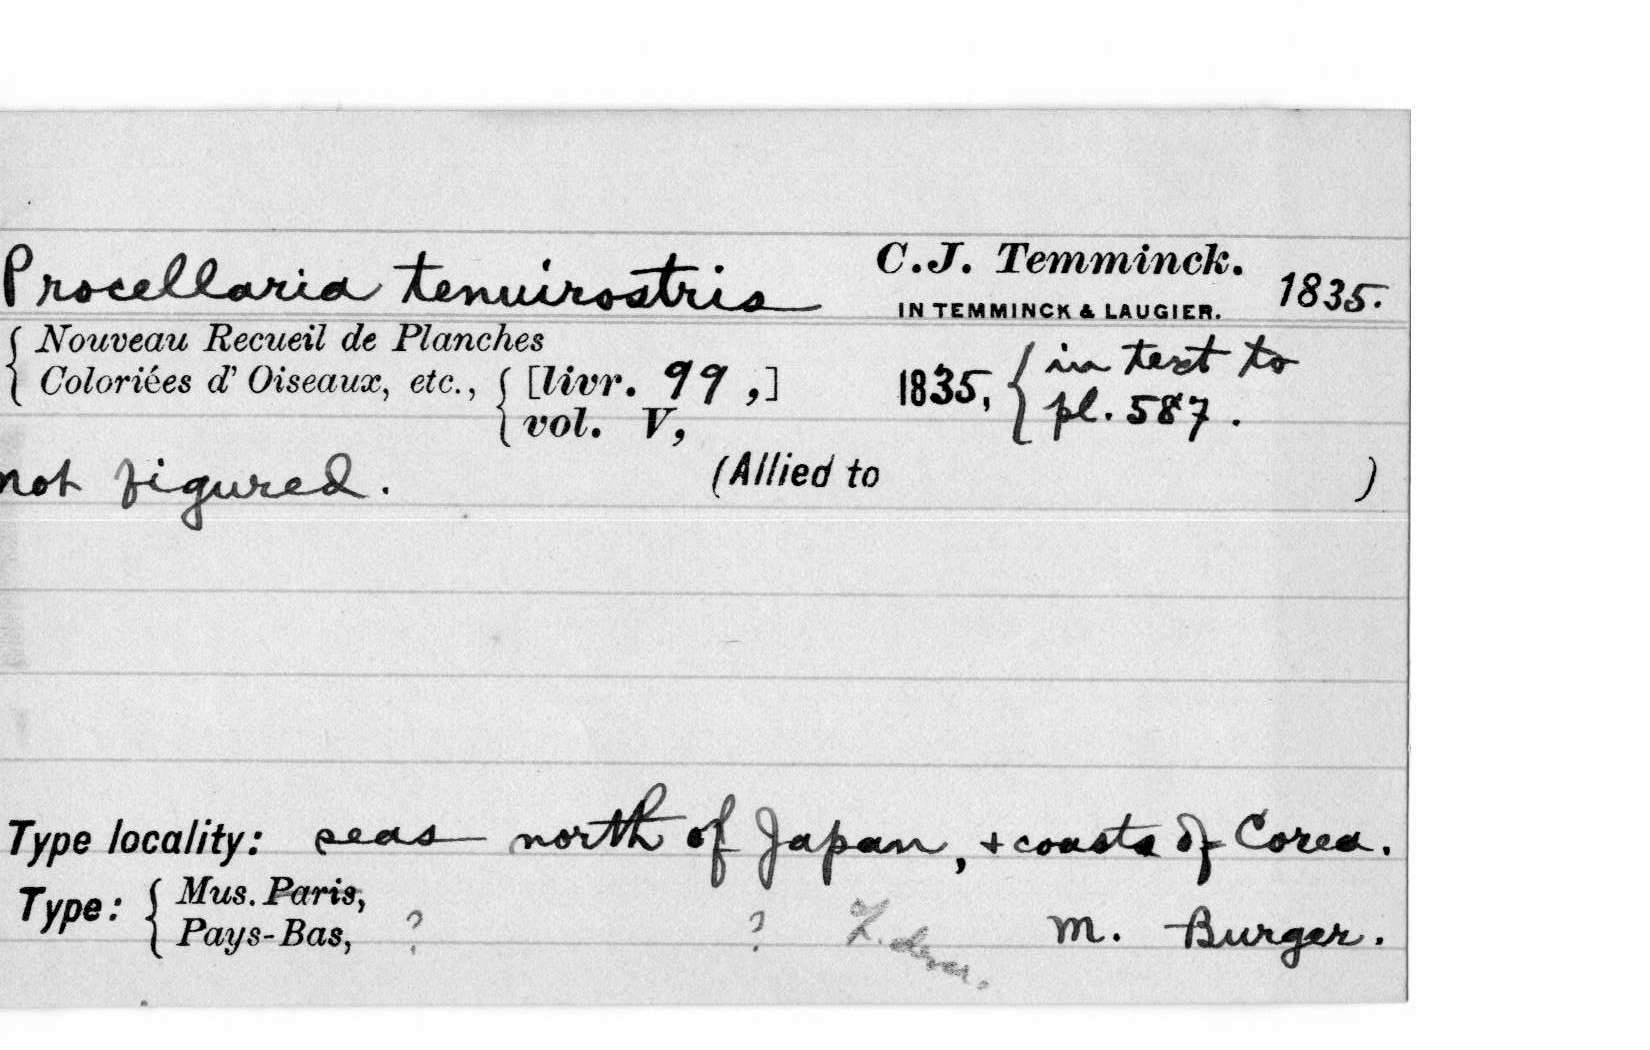 Procellaria tenuirostris C.J. Temminck. 1835.
IN TEMMINCK & LAUGIER.
Nouveau Recueil de Planches
Coloriées d' Oiseaux, etc., [livr. 99,] 1835, in text to
vol. V, pl. 587.
not figured. (Allied to )
Type locality: seas north of Japan, + coasts of Corea.
Type: Mus. Paris,
Pays-Bas, ? ? M. Burger.